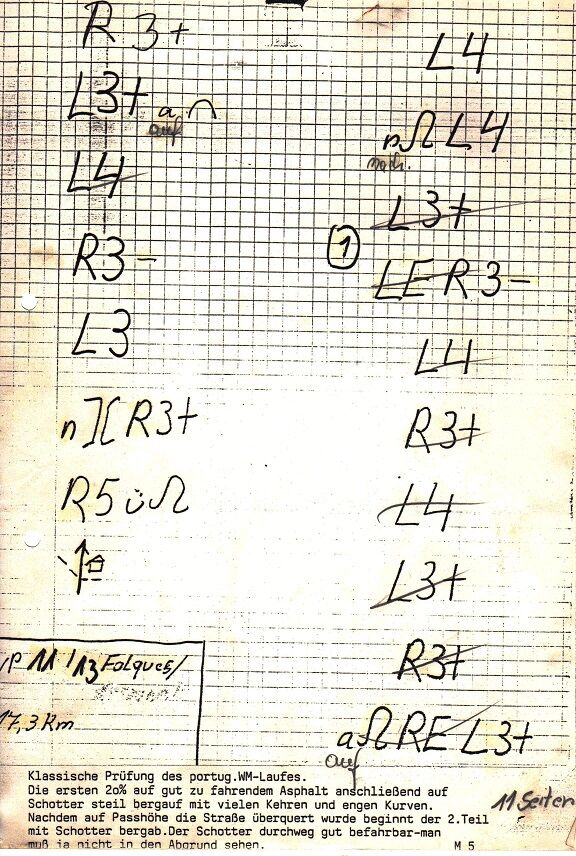 R 3+
L3+ a
auf
L4
R3-
L3
n ][ R3+
R5 ü Ω
L4
nΩ L4
nach.
L3+
1
LE R3-
L4
R3+
L4
L3+
R3+
aΩ RE L3+
auf
11/13
17,3 Km
11 Seiten
Klassische Prüfung des portug.WM-Laufes.
Die ersten 2o% auf gut zu fahrendem Asphalt anschließend auf
Schotter steil bergauf mit vielen Kehren und engen Kurven.
Nachdem auf Passhöhe die Straße überquert wurde beginnt der 2.Teil
mit Schotter bergab.Der Schotter durchweg gut befahrbar-man
muß ja nicht in den Abgrund sehen.
M 5